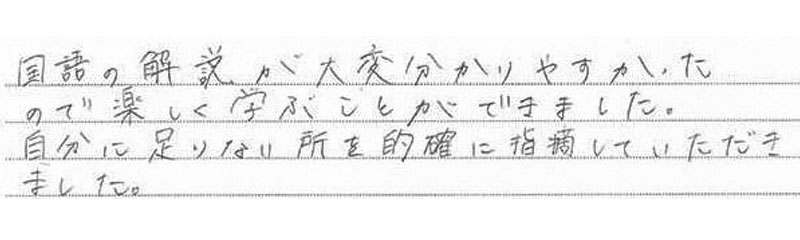 国語の解説が大変分かりやすかった
ので楽しく学ぶことができました。
自分に足りない所を的確に指摘していただき
ました。